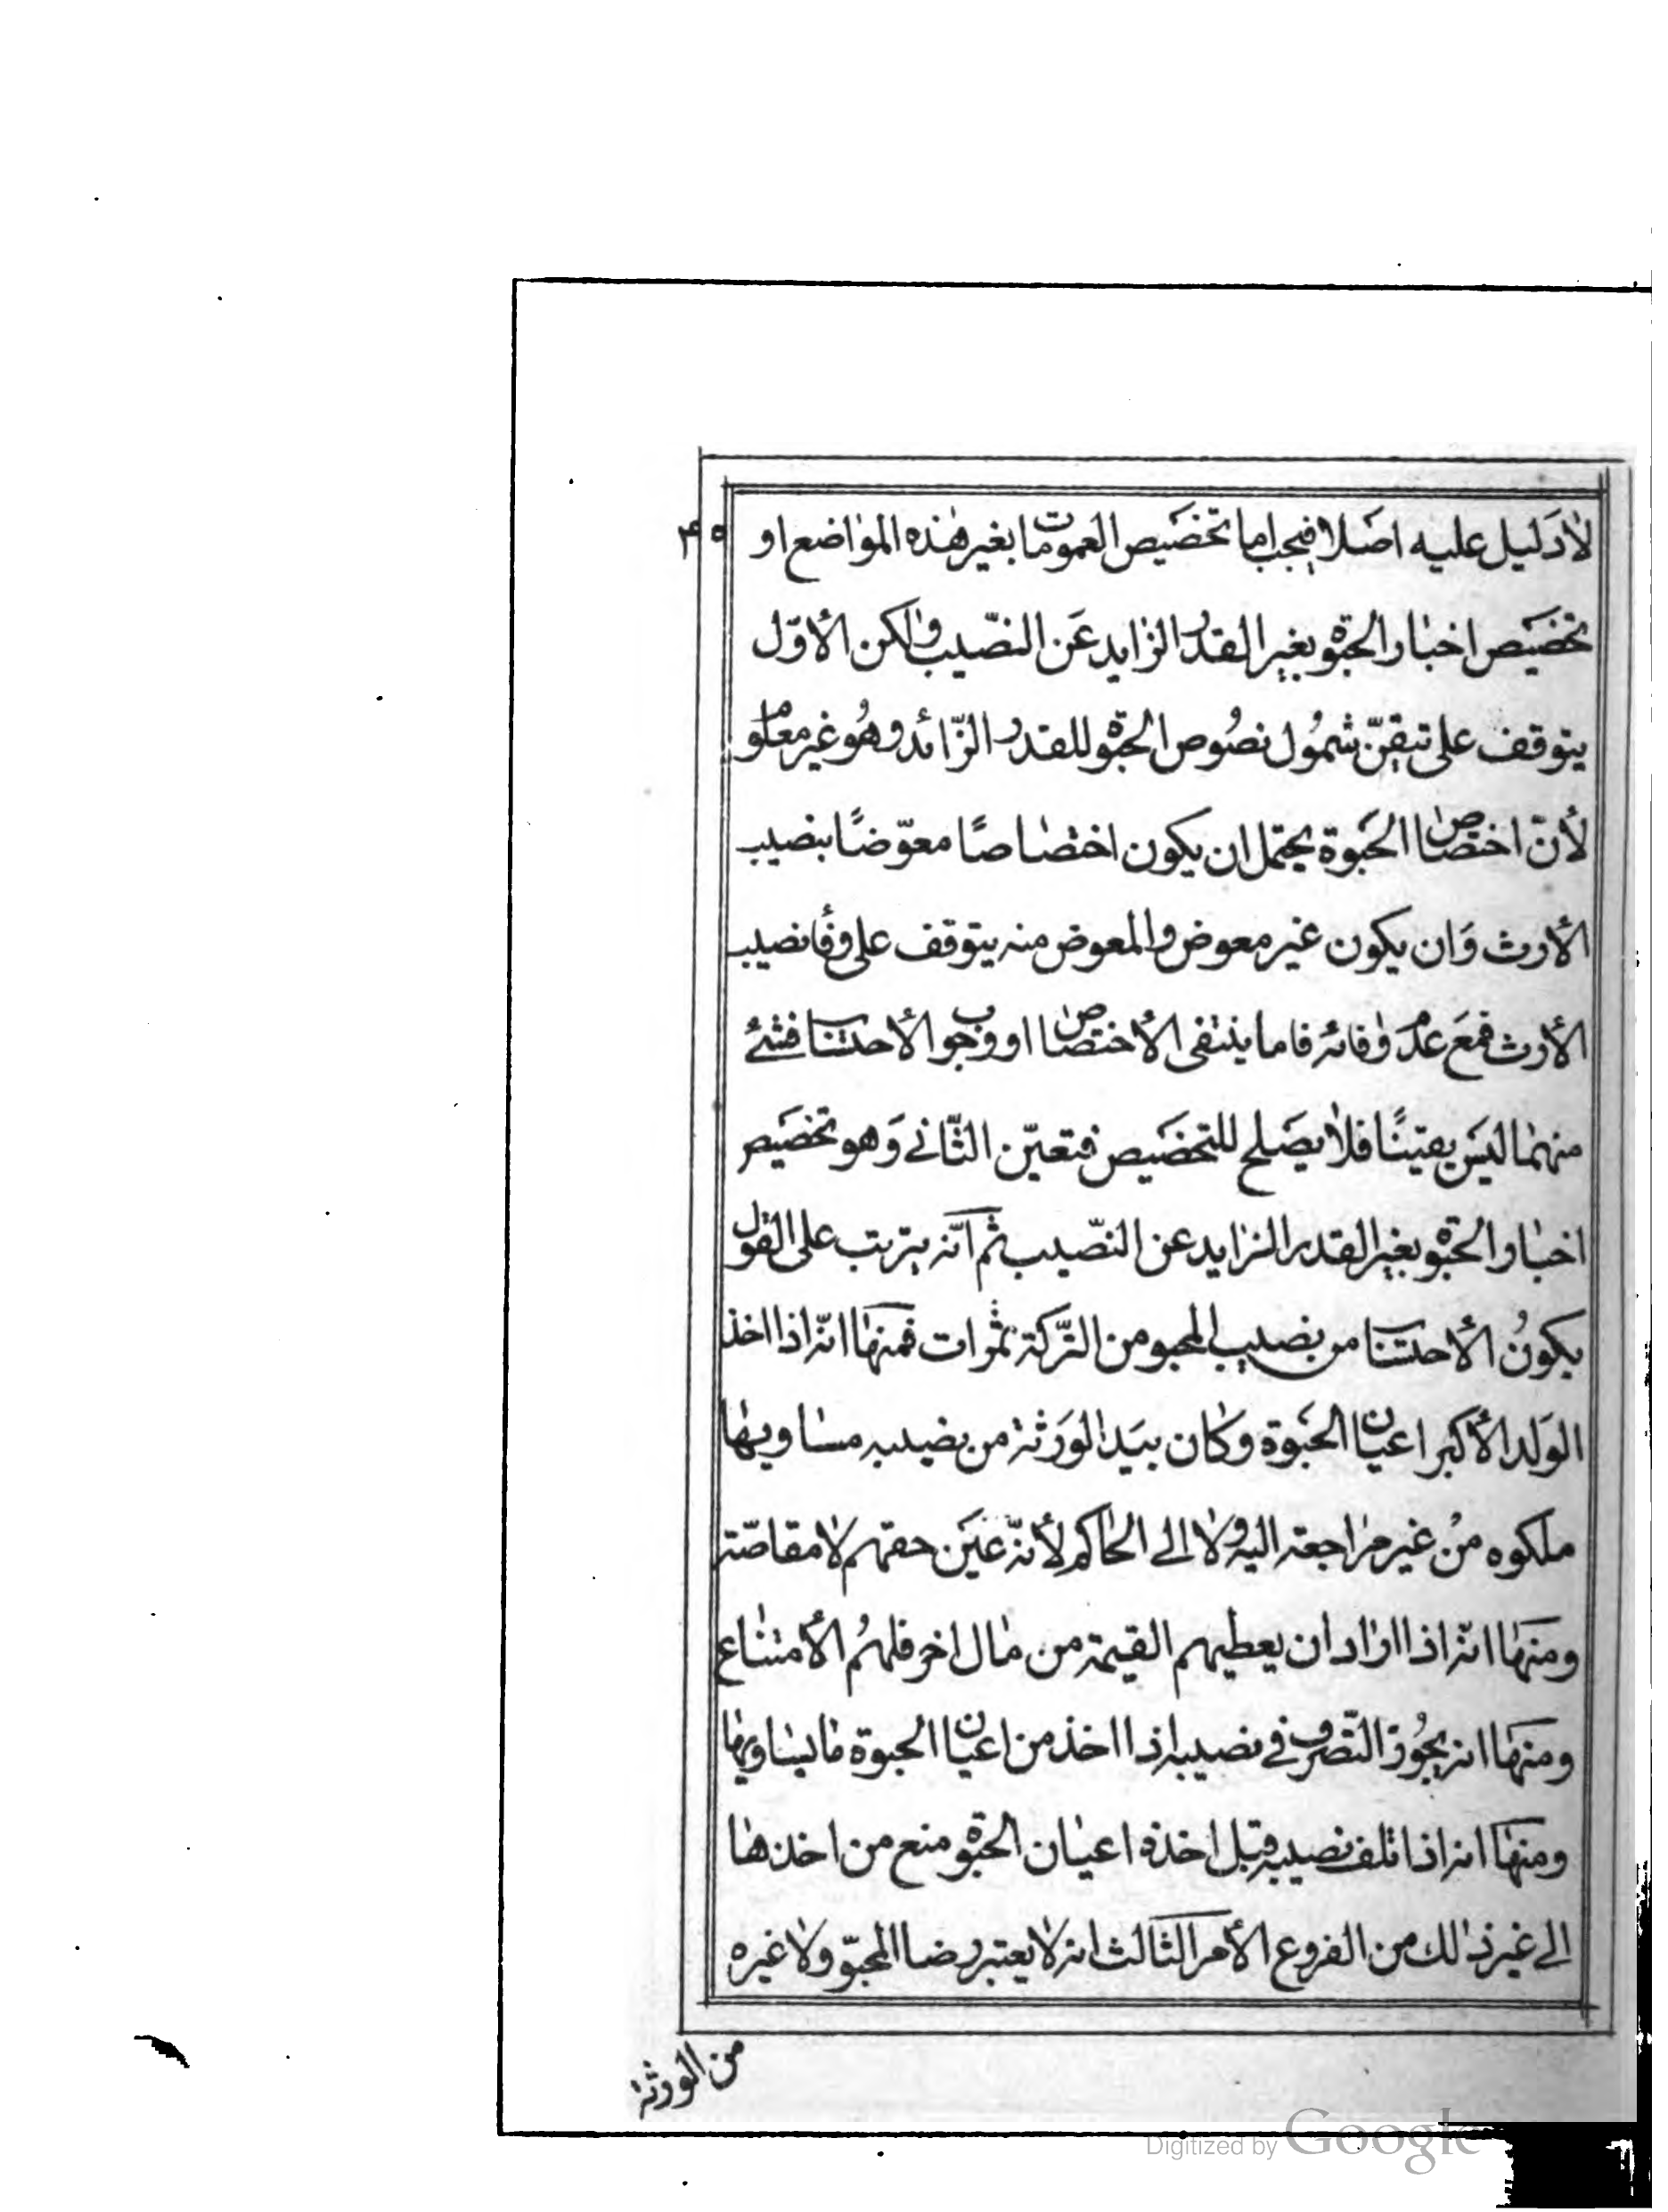 ۴۵
لا دَليل عليه اصَلا فيجب اما تخصَيص العمومات بغير هٰذه الموٰاضع او
تخصَيص اخبٰار الحَبْوة بغير القدر الزٰايد عَن النصّيب ولكن الأوّل
يتوقف على تيقّن شمُول نصُوص الحَبوة للقدر الزّائد وهُو غير معلوم
لأنّ اختصٰاص الحَبوة يحتمل ان يكون اختصٰاصًا معوّضًا بنصيب
الأرث وَان يكون غير معوض والمعوض منه يتوقف على وفٰأ نصيب
الأرث فمعَ عدَم وفائه فاما ينتفى الأختصٰاص او وجوب الأحتسٰاب فشئ
منهمٰا ليَس يقينًا فلا يصَلح للتخصَيص فتعيّن الثّانے وَهو تخصَيص
اخبٰار الحَبوة بغير القدر الزٰايد عن النصّيب ثم انّه يترتب على القول
بكونُ الأحتسٰاب من نصيب المحبو من التّركة ثمرات فمنهٰا انّه اذا اخذ
الوَلد الأكبر اعيٰان الحَبوة وكٰان بيَد الوَرثة من نصيبه مسٰاويهٰا
ملكوه منْ غير مرٰاجعة اليه ولا الے الحٰاكم لأنّه عَين حقهم لا مقاصّة
ومنهٰا انّه اذا ارٰاد ان يعطيهم القيمة من مٰال اخر فلهُم الأمتنٰاع
ومنهٰا انه يجُوز التّصرف فے نصيبه اذا اخذ من اعيٰان الحبوة مٰا يسٰاويهٰا
ومنهٰا انه اذا تلف نصيبه قبل اخذه اعيٰان الحَبوة منع من اخذهٰا
الے غير ذٰلك من الفروع الأمر الثالث انه لا يعتبر رضا المحبّو ولا غيره
من الورثة
Digitized by Google